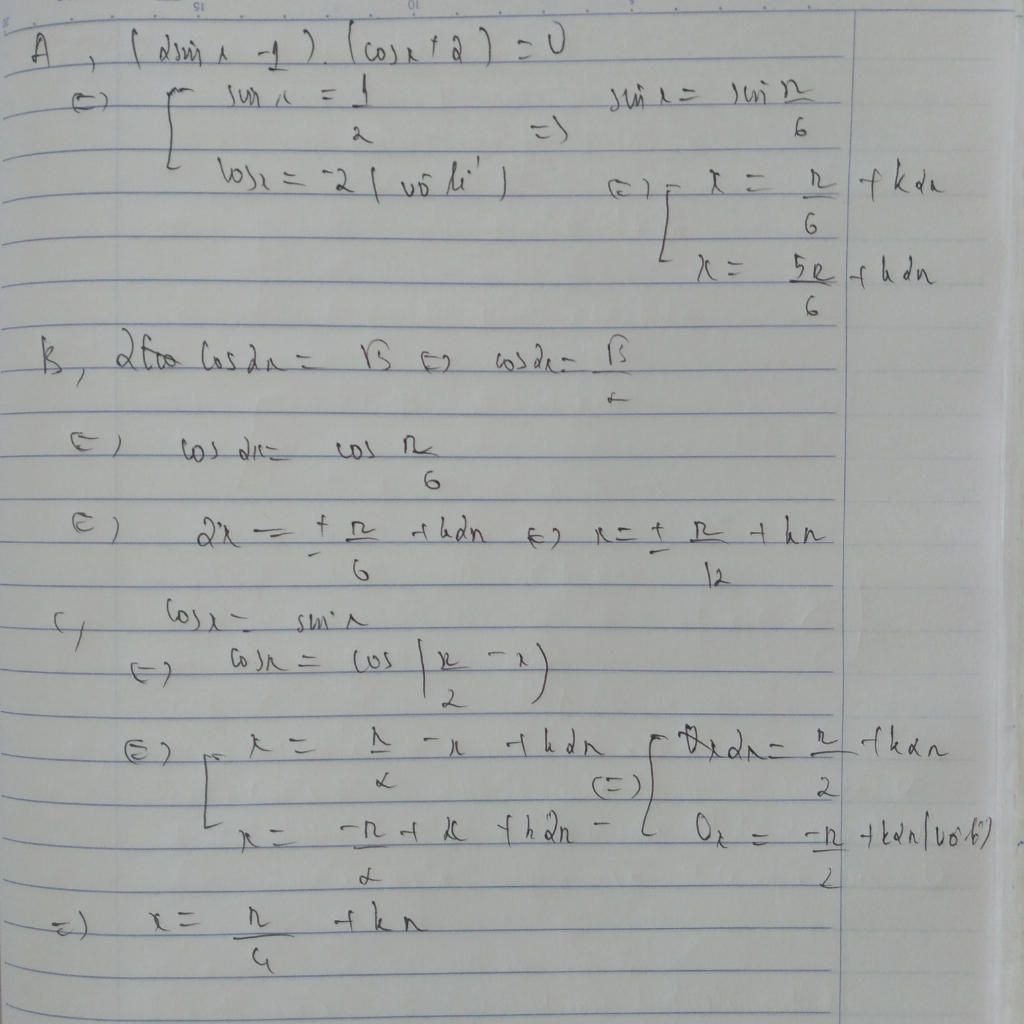 A, (2sin x - 1). (cosx + 2) = 0
<=> [ sin x = 1/2 => sin x = sin π/6
cosx = -2 (vô lí) <=> [ x = π/6 + k2π
x = 5π/6 + k2π
B, 2 cos2x = √3 <=> cos2x = √3/2
<=> cos 2x = cos π/6
<=> 2x = ± π/6 + k2π <=> x = ± π/12 + kπ
C, cosx = sin x
<=> cosx = cos (π/2 - x)
<=> [ x = π/2 - x + k2π <=> [ 2x = π/2 + k2π
x = -π/2 + x + k2π - 0x = -π/2 + k2π (vô lí)
=> x = π/4 + kπ